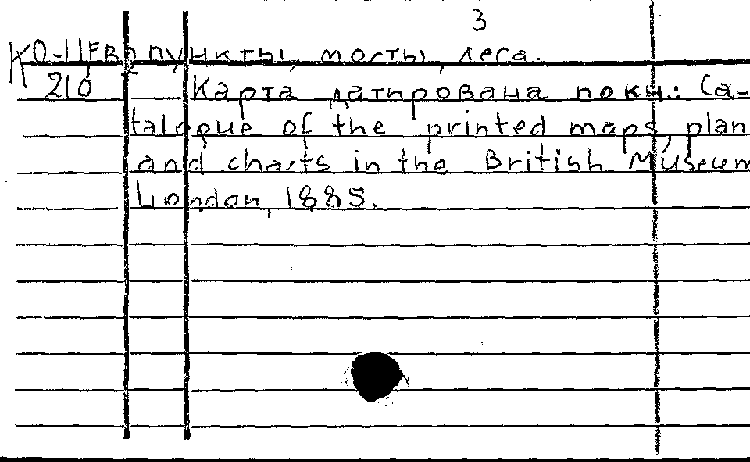 3
КО-11/Евр пункты, мосты, леса.
210 Карта датирована по кн.: Ca-
talogue of the printed maps, plan
and charts in the British Museum
London, 1885.